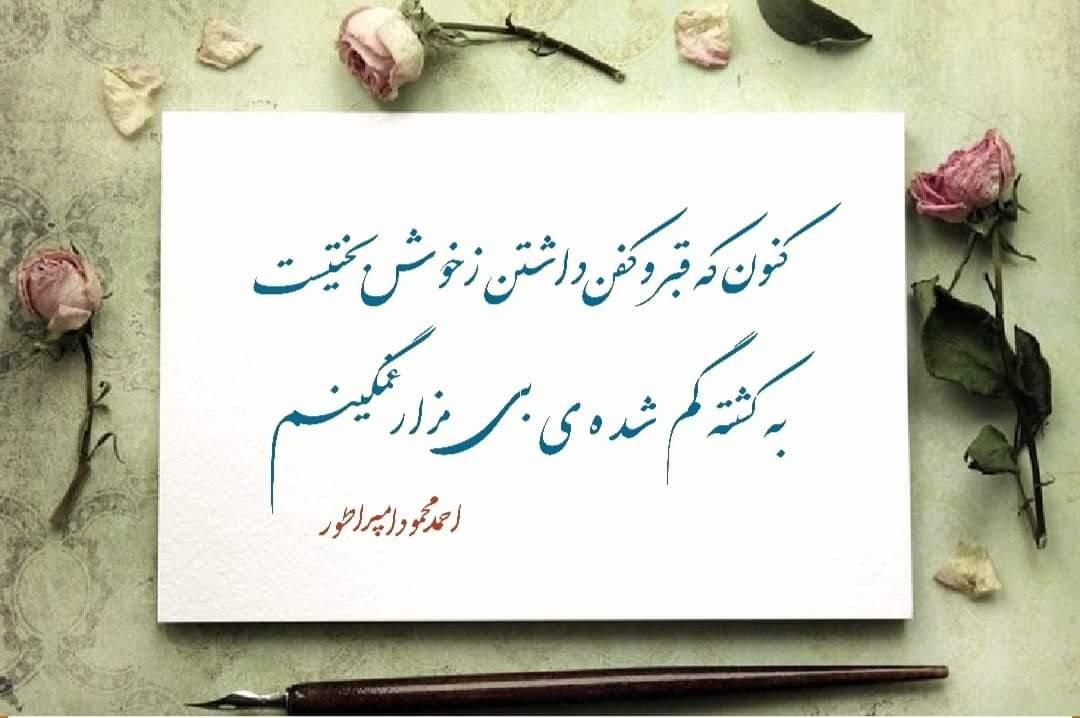 کنون که قبر و کفن داشتن ز خوش بختیست
به کشته گم شده ی بی مزار غمگینم
احمد محمود امپراطور